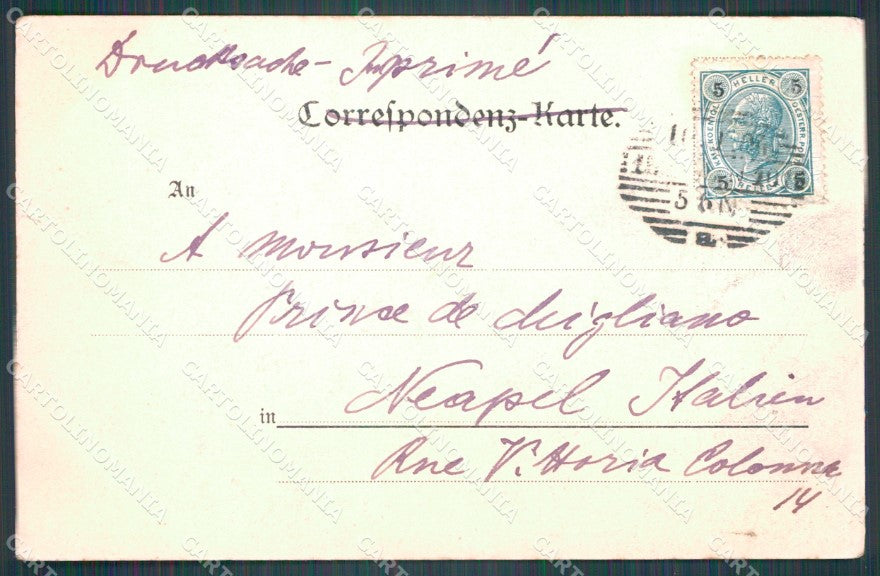 Drucksache - Imprimé
Correspondenz-Karte.
5 HELLER 5
5 5
An
A Monsieur
Prince de Migliano
in Neapel Italien
Rue Vittoria Colonna
14
CARTOLINOMANIA